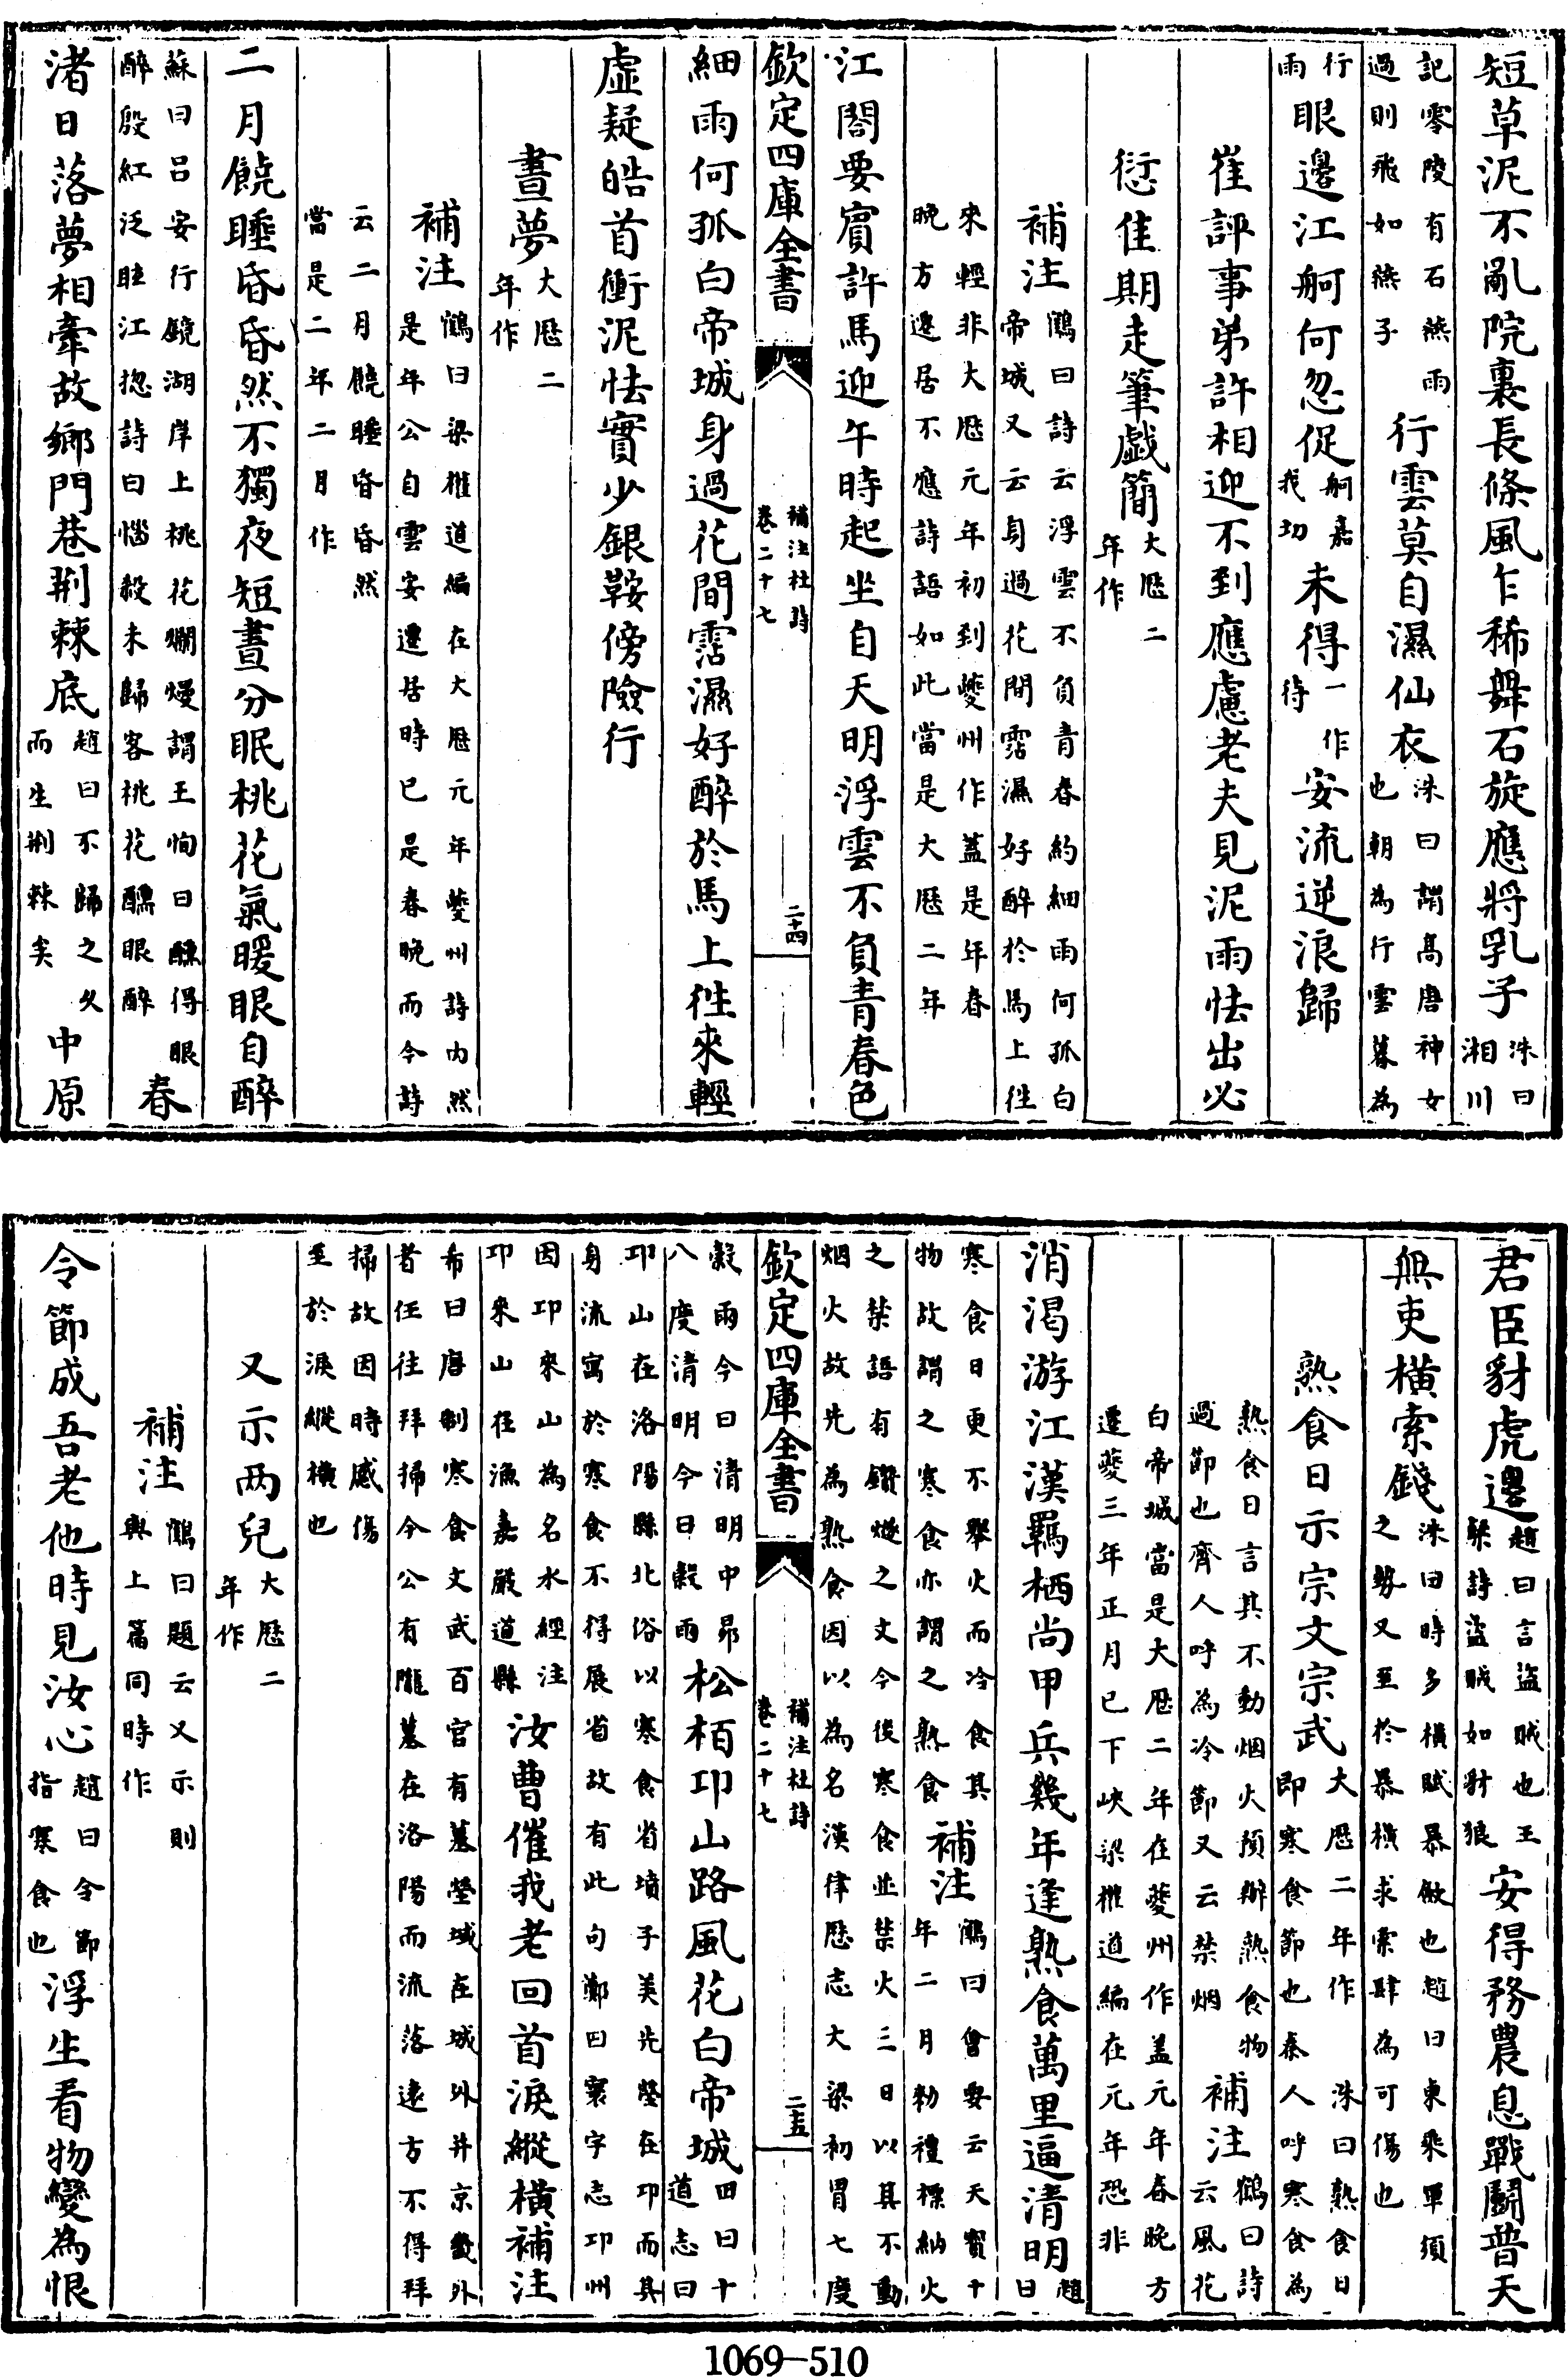 短草泥不亂院裏長條風乍稀舞石旋應將乳子洙曰湘川
記零陵有石燕雨過則飛如燕子行雲莫自濕仙衣洙曰謂髙唐神女也朝為行雲暮為
行雨眼邊江舸何忽促舸嘉我切未得一作待安流逆浪歸
崔評事弟許相迎不到應慮老夫見泥雨怯出必
愆佳期走筆戯簡大厯二年作
補注鶴曰詩云浮雲不負青春約細雨何孤白帝城又云身過花間霑濕好醉於馬上徃
來輕非大厯元年初到夔州作蓋是年春晚方遷居不應詩語如此當是大厯二年
江閣要賓許馬迎午時起坐自天明浮雲不負青春色
欽定四庫全書 補注杜詩卷二十七 二十四
細雨何孤白帝城身過花間霑濕好醉於馬上徃來輕
虛疑皓首衝泥怯實少銀鞍傍險行
晝夢大厯二年作
補注鶴曰梁權道編在大厯元年夔州詩内然是年公自雲安遷居時已是春晚而今詩
云二月饒睡昏昏然當是二年二月作
二月饒睡昏昏然不獨夜短晝分眠桃花氣暖眼自醉
蘇曰吕安行鏡湖岸上桃花爛熳謂王恂曰醺得眼醉殷紅泛江揔詩曰惱殺未歸客桃花醺眼醉春
渚日落夢相牽故鄉門巷荆棘底趙曰不歸之久而生荆棘矣中原
君臣豺虎邊趙曰言盜賊也王粲詩盜賊如豺狼安得務農息戰鬭普天
無吏橫索錢洙曰時多橫賦暴斂也趙曰東乘軍須之勢又至於暴橫求索肆為可傷也
熟食日示宗文宗武大厯二年作洙曰熟食日即寒食節也秦人呼寒食為
熟食日言其不動烟火預辦熟食物過節也齊人呼為冷節又云禁烟補注鶴曰詩云風花
白帝城當是大厯二年在夔州作盖元年春晚方遷夔三年正月已下峽梁權道編在元年恐非
消渴游江漢羈栖尚甲兵幾年逢熟食萬里逼清明趙曰
寒食日更不舉火而冷食其物故謂之寒食亦謂之熟食補注鶴曰會要云天寳十年二月勅禮標納火
之禁語有鑽燧之文今後寒食並禁火三日以其不動烟火故先為熟食因以為名漢律厯志大梁初胃七度
欽定四庫全書 補注杜詩卷二十七 二十五
穀雨今曰清明中昴八度清明今日穀雨松栢卭山路風花白帝城田曰十道志曰
卭山在洛陽縣北俗以寒食省墳子美先塋在卭而其身流寓於寒食不得展省故有此句鄭曰寰宇志卭州
因卭來山為名水經注卭來山在漁嘉嚴道縣汝曹催我老回首淚縱橫補注
希曰唐制寒食文武百官有墓塋域在城外并京畿外者任往拜掃今公有隴墓在洛陽而流落遠方不得拜
掃故因時感傷至於淚縱橫也
又示兩兒大厯二年作
補注鶴曰題云又示則與上篇同時作
令節成吾老他時見汝心趙曰令節指寒食也浮生看物變為恨
1069-510